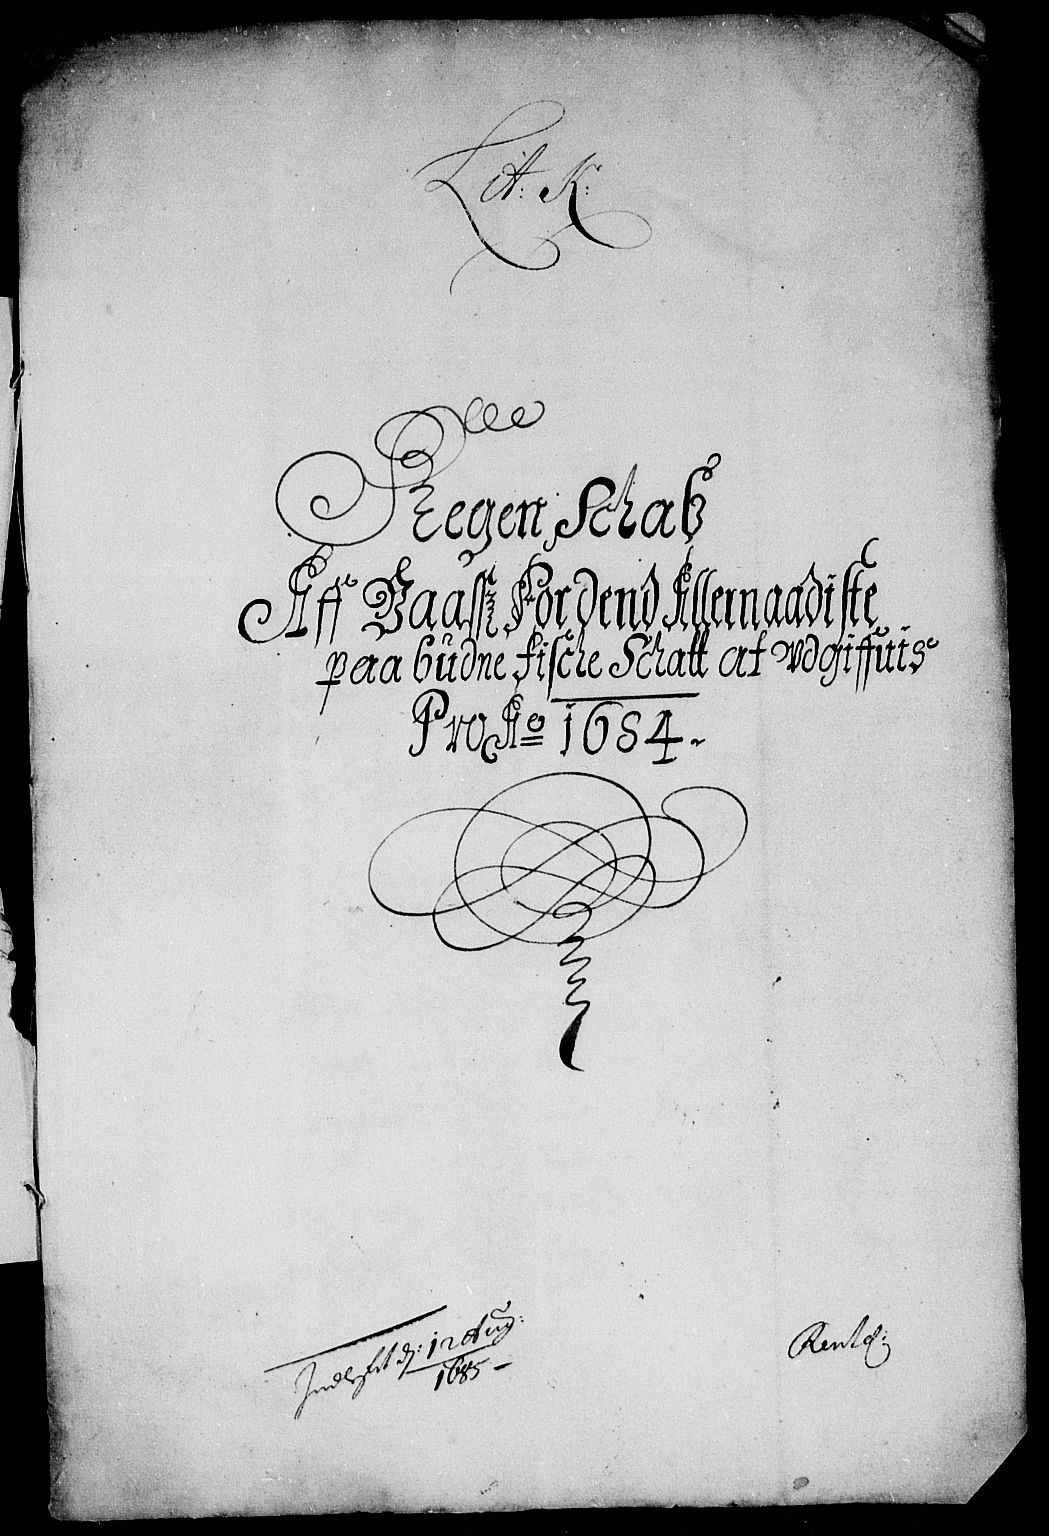 Lit: K:
Regen Schab
Aff Baaß For dend Allernaadiste
paa budne fische Schatt at vdgiffuis
Pro Ao 1684.
Indlefrt dj: 12 Aug:
1685
Rentd: